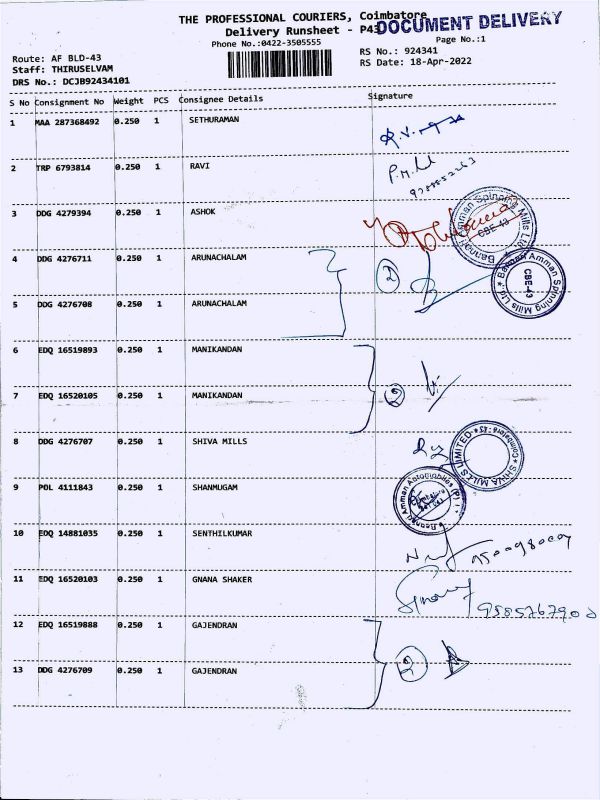 THE PROFESSIONAL COURIERS, Coimbatore
DOCUMENT DELIVERY
Delivery Runsheet - P43
Phone No.:0422-3505555
Page No.:1
Route: AF BLD-43
RS No.: 924341
Staff: THIRUSELVAM
RS Date: 18-Apr-2022
DRS No.: DCJB92434101
S No Consignment No Weight PCS Consignee Details Signature
1 MAA 287368492 0.250 1 SETHURAMAN
2 TRP 6793814 0.250 1 RAVI
P.M.
3 DDG 4279394 0.250 1 ASHOK
Bannari Amman Spinning Mills Ltd.
CBE-43
4 DDG 4276711 0.250 1 ARUNACHALAM
2
Bannari Amman Spinning Mills Ltd.
CBE-43
5 DDG 4276708 0.250 1 ARUNACHALAM
6 EDQ 16519893 0.250 1 MANIKANDAN
7 EDQ 16520105 0.250 1 MANIKANDAN
2
8 DDG 4276707 0.250 1 SHIVA MILLS
SHIVA MILLS LIMITED
Coimbatore-43
9 POL 4111843 0.250 1 SHANMUGAM
Bannari Amman Automobiles (P)
10 EDQ 14881035 0.250 1 SENTHILKUMAR
11 EDQ 16520103 0.250 1 GNANA SHAKER
12 EDQ 16519888 0.250 1 GAJENDRAN
2
13 DDG 4276709 0.250 1 GAJENDRAN